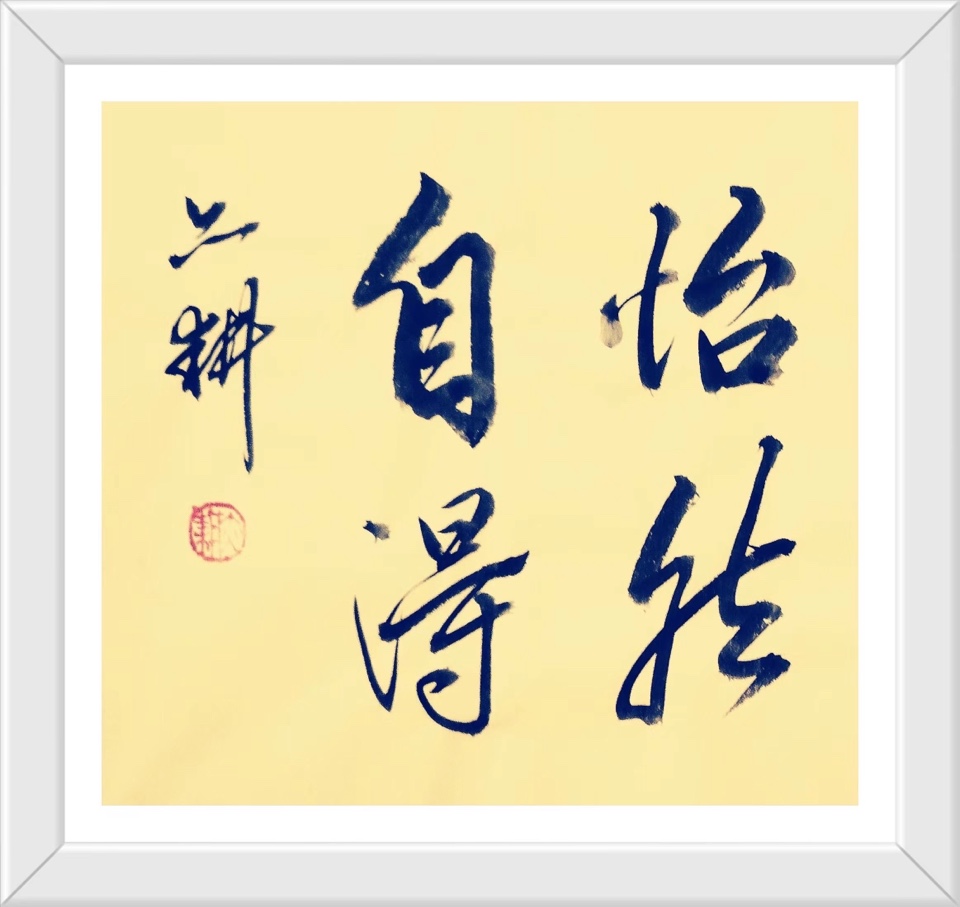 怡然
自得
耕